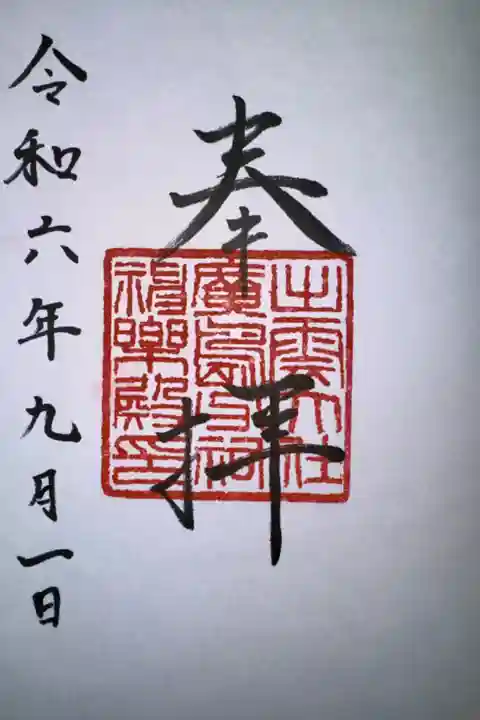 奉拝
出雲大社
廣島分祠
神樂殿印
令和六年九月一日